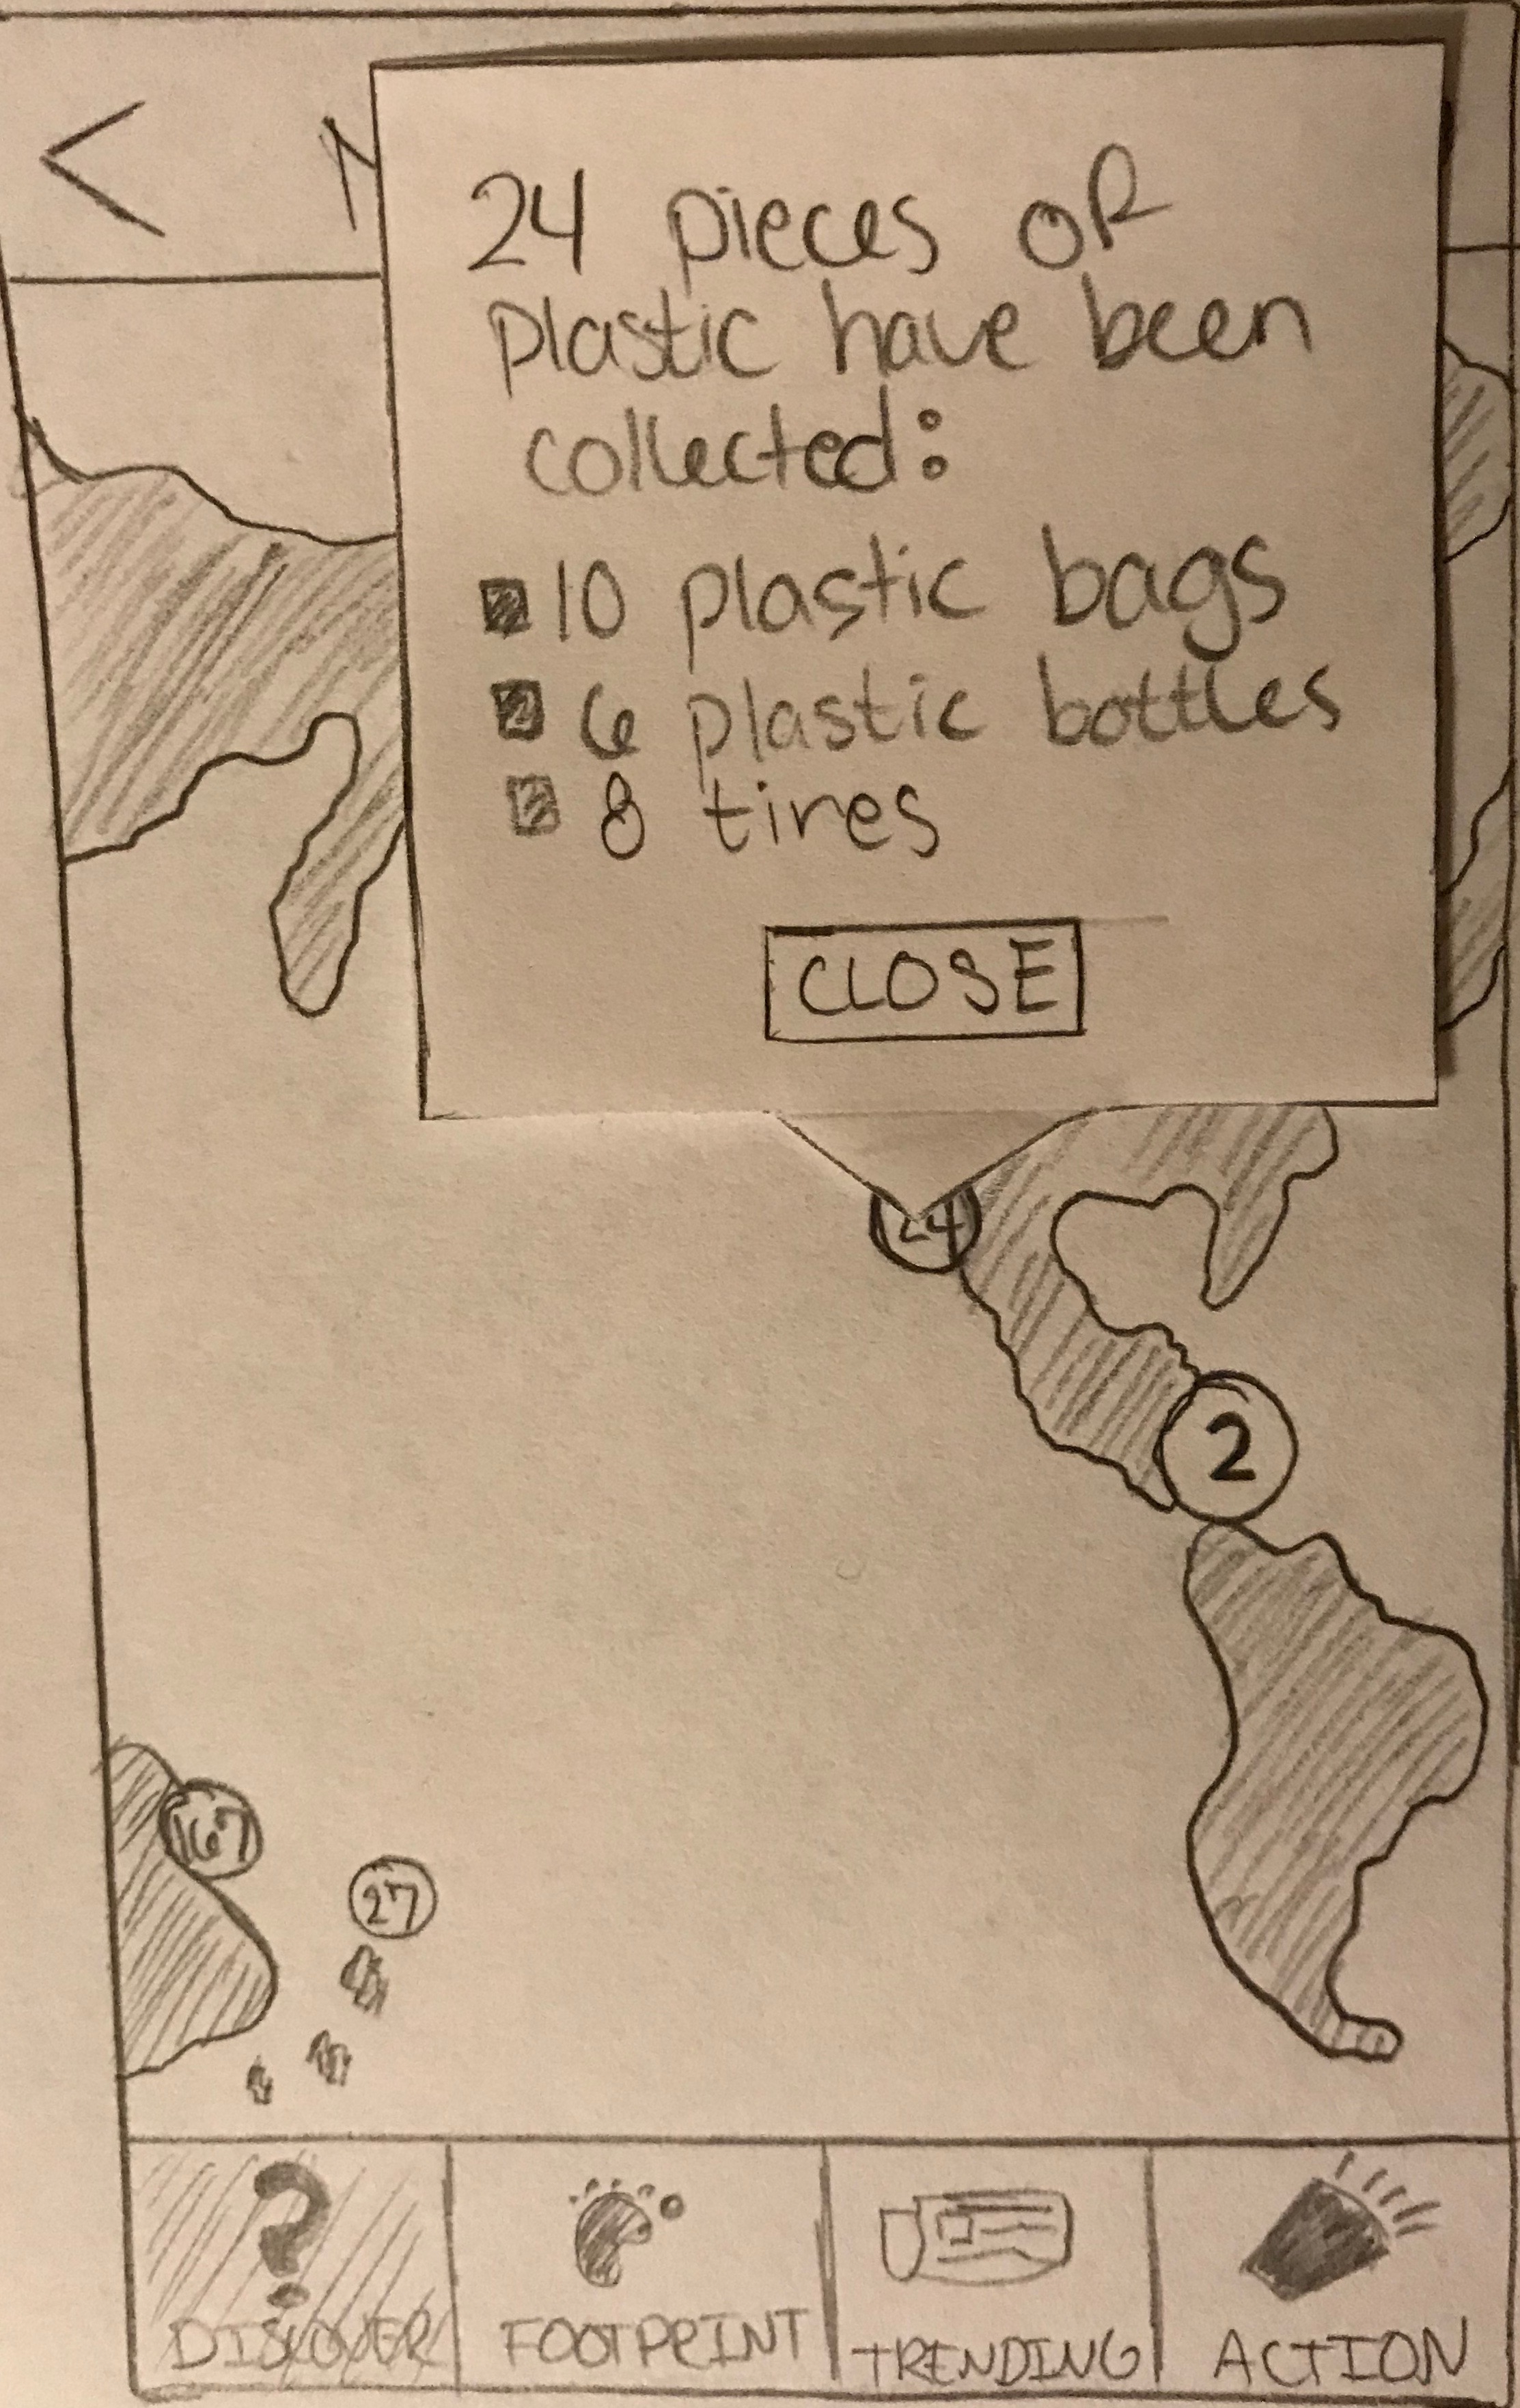 <
24 pieces of
plastic have been
collected:
10 plastic bags
6 plastic bottles
8 tires
CLOSE
24
2
167
27
?
DISCOVER FOOTPRINT TRENDING ACTION